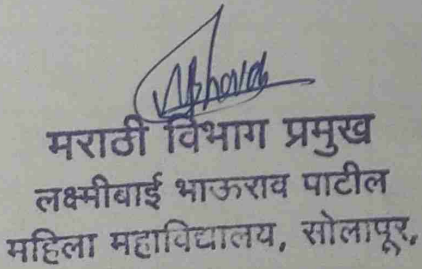 मराठी विभाग प्रमुख
लक्ष्मीबाई भाऊराव पाटील
महिला महाविद्यालय, सोलापूर,